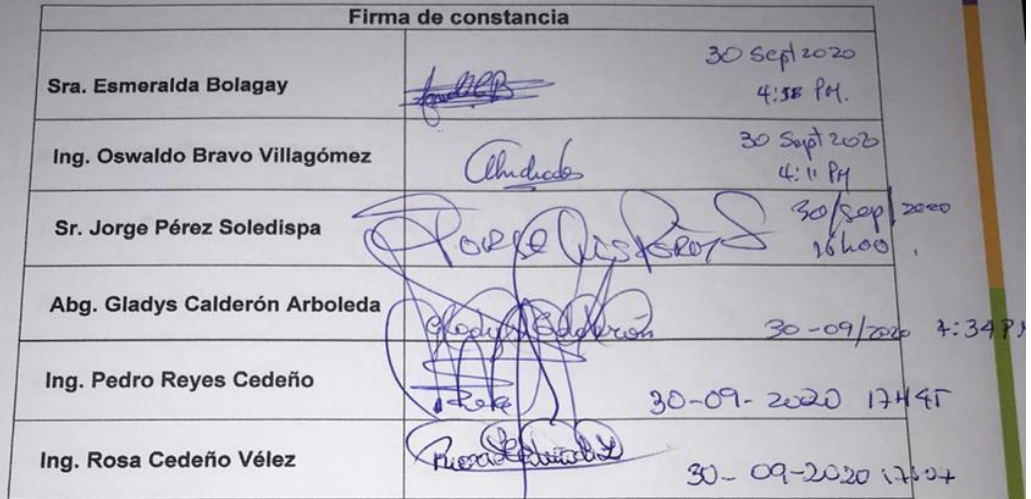 Firma de constancia
Sra. Esmeralda Bolagay
30 Sept 2020
PM.
Ing. Oswaldo Bravo Villagómez
30 Sept 2020
4:11 PM
Sr. Jorge Pérez Soledispa
30/Sep/2020
16h00
Abg. Gladys Calderón Arboleda
Gladys Calderón
30-09/2020 4:34 PM
Ing. Pedro Reyes Cedeño
30-09-2020 17H45
Ing. Rosa Cedeño Vélez
30-09-2020